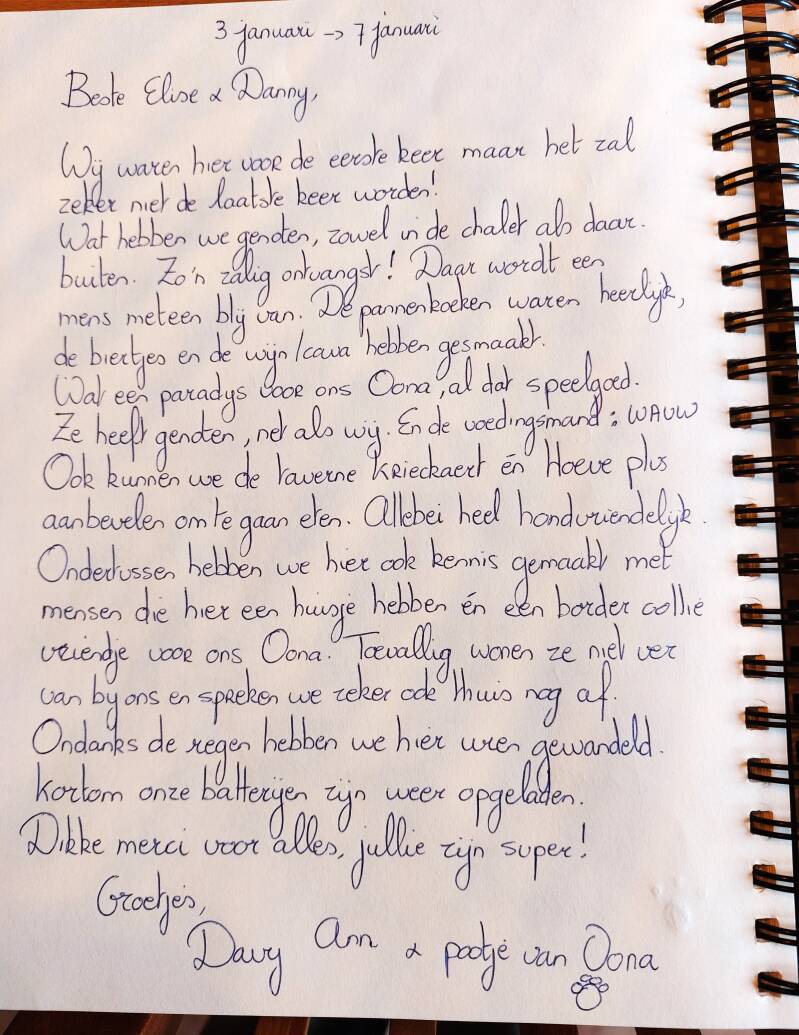 3 januari -> 7 januari
Beste Elise & Danny,
Wij waren hier voor de eerste keer maar het zal
zeker niet de laatste keer worden!
Wat hebben we genoten, zowel in de chalet als daar.
buiten. Zo'n zalig ontvangst! Daar wordt een
mens meteen blij van. De pannenkoeken waren heerlijk,
de biertjes en de wijn/cava hebben gesmaakt.
Wat een paradys voor ons Oona, al dat speelgoed.
Ze heeft genoten, net als wij. En de voedingsmand: WAUW
Ook kunnen we de taverne Krieckaert én Hoeve plus
aanbevelen om te gaan eten. Allebei heel hondvriendelijk.
Ondertussen hebben we hier ook kennis gemaakt met
mensen die hier een huisje hebben én een border collie
vriendje voor ons Oona. Toevallig wonen ze niet ver
van by ons en spreken we zeker ook thuis nog af.
Ondanks de regen hebben we hier uren gewandeld.
Kortom onze batterijen zijn weer opgeladen.
Dikke merci voor alles, jullie zijn super!
Groetjes,
Davy Ann & pootje van Oona